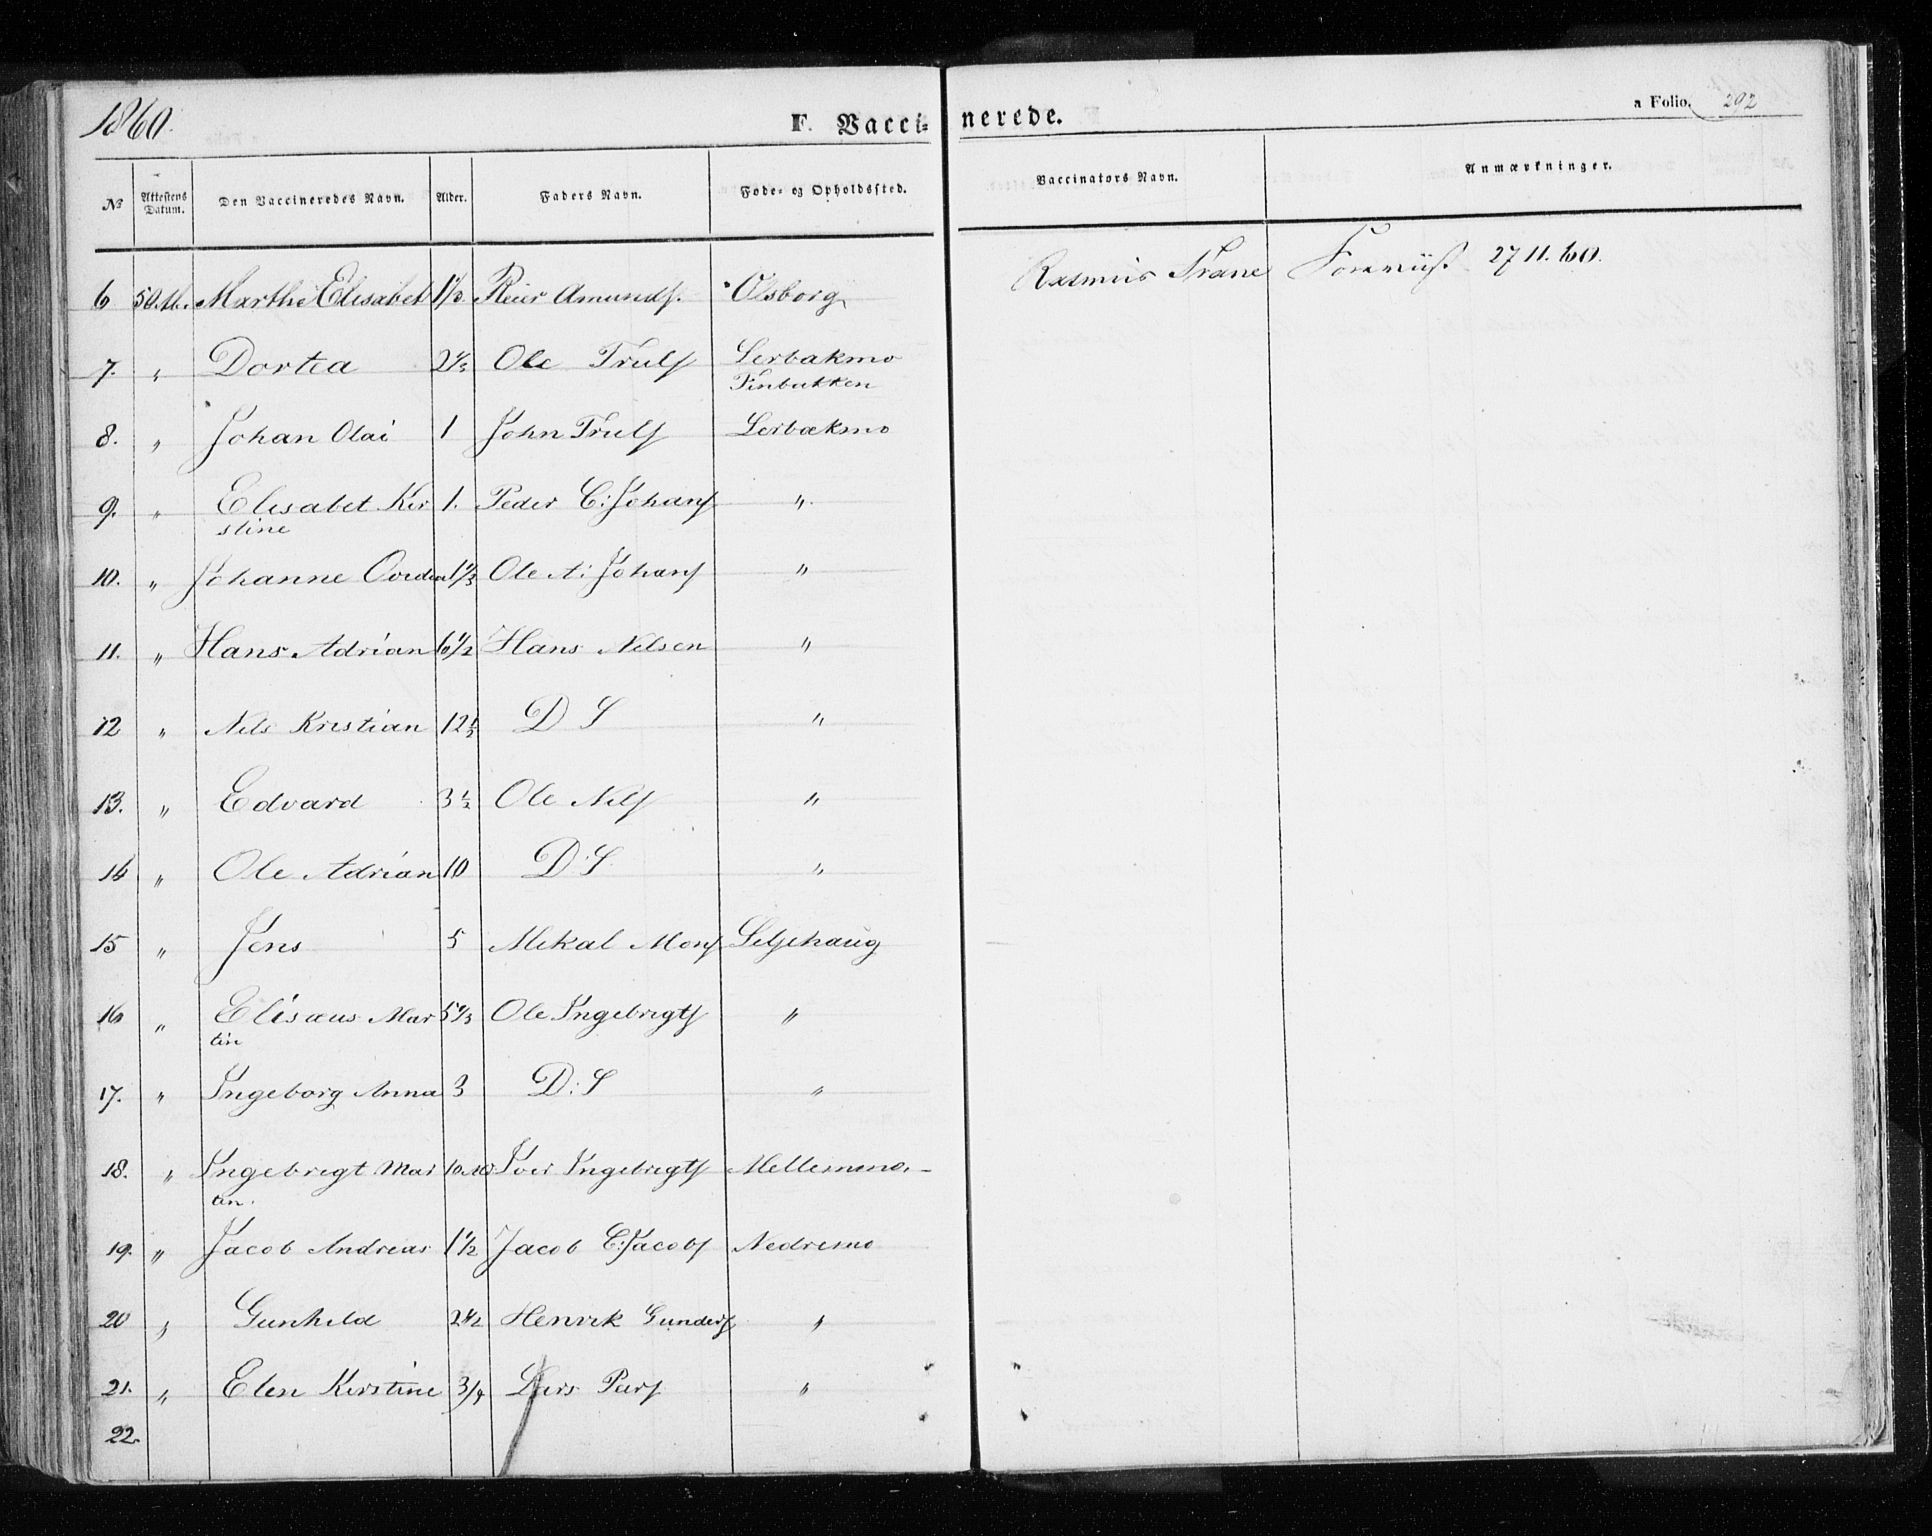 1860.
F. Vacci- nerede.
a Folio. 292
No Attestens Datum. Den Vaccineredes Navn. Alder. Faders Navn. Føde- og Opholdssted. Vaccinators Navn. Anmærkninger.
6 Marthe Elisabet 1 1/3 Reier Amunds. Olsborg Rasmus Trane 27 11. 60.
7. " Dortea 2 1/3 Ole Truls Lerbakmo
Finbakken
8. " Johan Olai 1 John Truls Lerbakmo
9. " Elisabet Ker 1. Peder C: Johans "
stine
10. " Johanne 1 1/3 Ole A: Johans "
11. " Hans Adrian 6 1/2 Hans Nilsen "
12 " Nils Kristian 12 1/3 D S "
13. " Edvard 3 1/2 Ole Nils "
14 " Ole Adrian 10 D: S "
15 " Jens 5 Mikal Mons Seljehaug
16 " Elisæus Mar 5 1/3 Ole Ingebrigts "
tin
17. " Ingeborg Anna 3 D: S "
18. " Ingebrigt Mar Iver Ingebrigts Mellemmo. -
tin.
19. " Jacob Andreas 1 1/2 Jacob E: Jacobs Nedremo
20 " Gunhild 2 1/2 Henrik Gunders "
21. " Elen Kerstine 3/4 Lars Pers "
22.